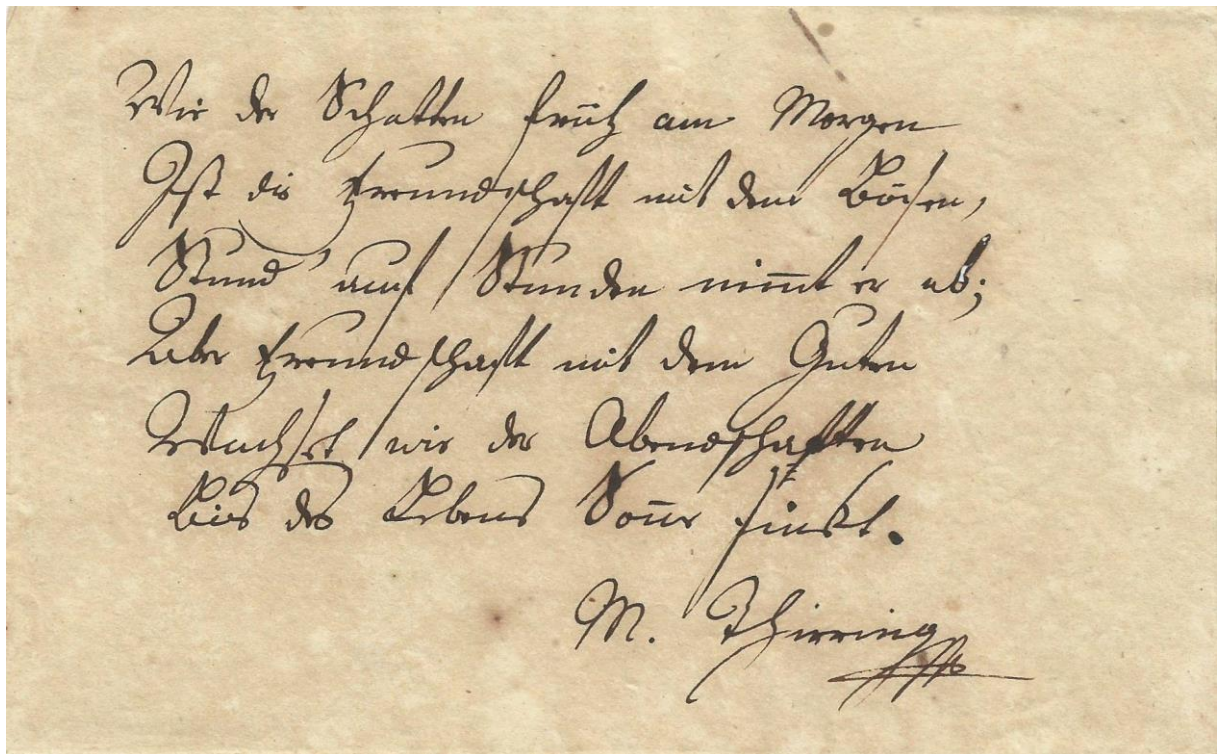 Wie der Schatten früh am Morgen
Ist die Freundschaft mit dem Bösen,
Stund' auf Stunden nim̅t er ab;
Aber Freundschaft mit dem Guten
Wachset wie der Abendschatten
Bis des Lebens Son̅e sinkt.
M. Thirring